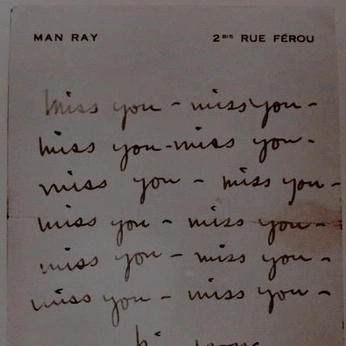 MAN RAY 2 BIS RUE FÉROU
miss you - miss you -
miss you - miss you -
miss you - miss you -
miss you - miss you -
miss you - miss you -
miss you - miss you -